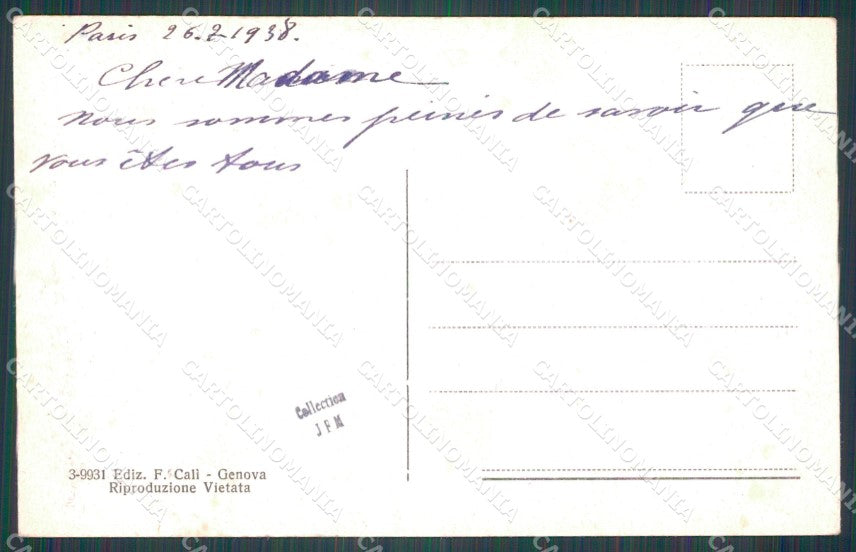 Paris 26.2.1938.
Chere Madame
nous sommes peinés de savoir que
vous êtes tous
Collection
JPM
3-9931 Ediz. F. Cali - Genova
Riproduzione Vietata
CARTOLINOMANIA